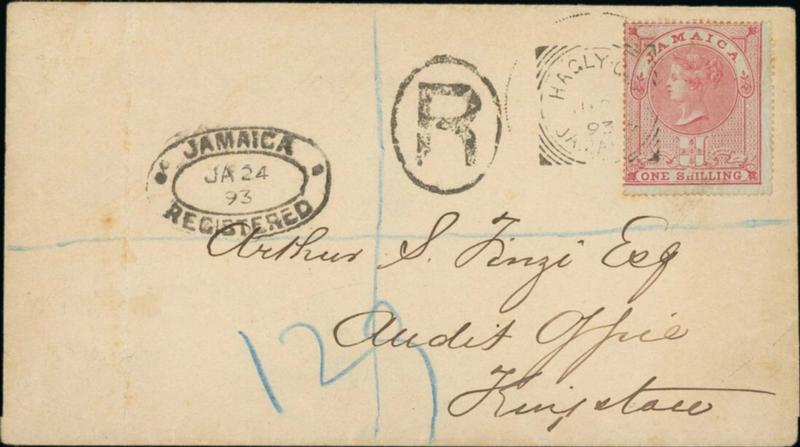 JAMAICA
JA 24
93
REGISTERED
R
HAGLY
93
JAMAICA
ONE SHILLING
Arthur S. Finzi Esq
Audit Office
Kingston
129